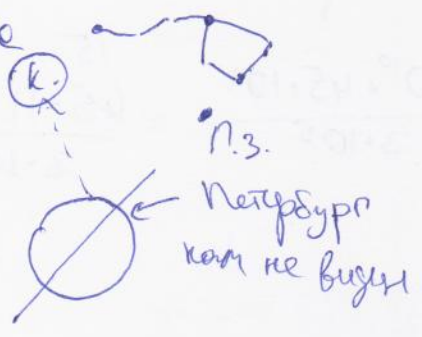 К.
П.З.
Петербург
нам не виден